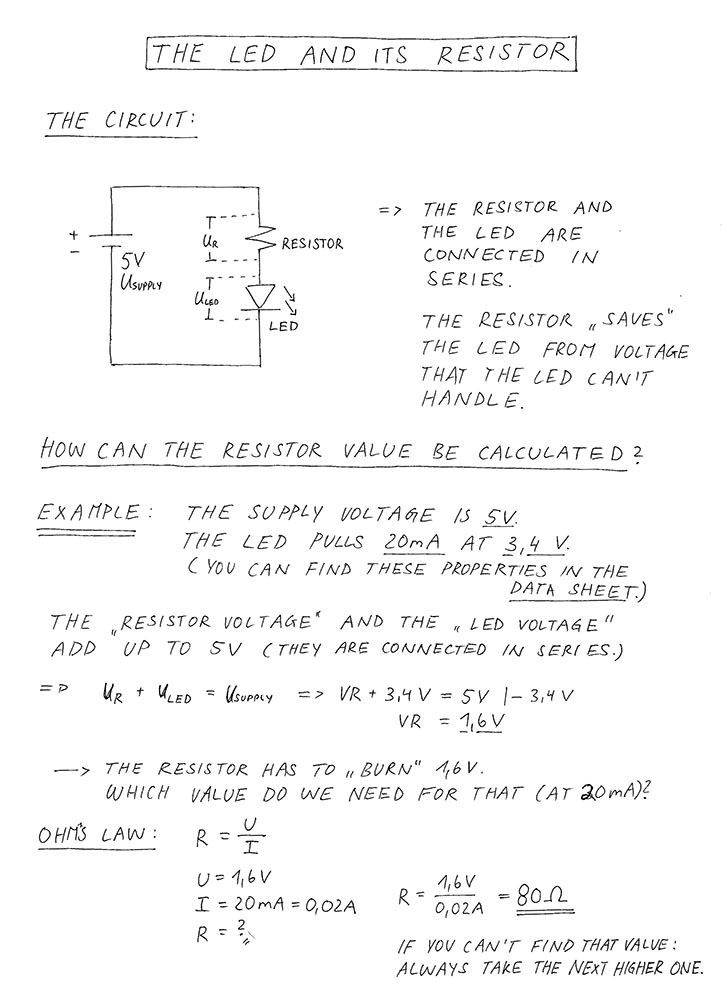 THE LED AND ITS RESISTOR
THE CIRCUIT:
+
-
5V
USUPPLY
UR
RESISTOR
ULED
LED
=> THE RESISTOR AND
THE LED ARE
CONNECTED IN
SERIES.
THE RESISTOR „SAVES"
THE LED FROM VOLTAGE
THAT THE LED CAN'T
HANDLE.
HOW CAN THE RESISTOR VALUE BE CALCULATED?
EXAMPLE: THE SUPPLY VOLTAGE IS 5V.
THE LED PULLS 20mA AT 3,4 V.
(YOU CAN FIND THESE PROPERTIES IN THE
DATA SHEET.)
THE „RESISTOR VOLTAGE" AND THE „LED VOLTAGE"
ADD UP TO 5V (THEY ARE CONNECTED IN SERIES.)
=> UR + ULED = USUPPLY => VR + 3,4 V = 5V |- 3,4 V
VR = 1,6 V
—> THE RESISTOR HAS TO „BURN" 1,6V.
WHICH VALUE DO WE NEED FOR THAT (AT 20mA)?
OHM'S LAW: R = U/I
U = 1,6 V
I = 20mA = 0,02A
R = ?
R = 1,6V/0,02A = 80Ω
IF YOU CAN'T FIND THAT VALUE:
ALWAYS TAKE THE NEXT HIGHER ONE.